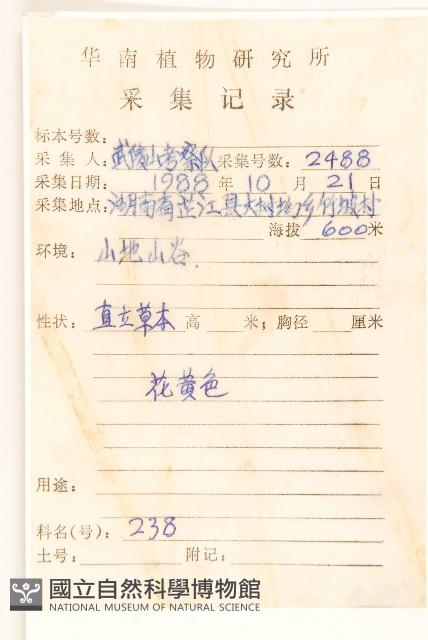 华南植物研究所
采集记录
标本号数:
采集人: 武陵山考察队 采集号数: 2488
采集日期: 1988 年 10 月 21 日
采集地点: 湖南省芷江县大树坳乡竹坡村
海拔 600 米
环境: 山地山谷.
性状: 直立草本 高 米; 胸径 厘米
花黄色
用途:
科名(号): 238
土号: 附记:
國立自然科學博物館
NATIONAL MUSEUM OF NATURAL SCIENCE